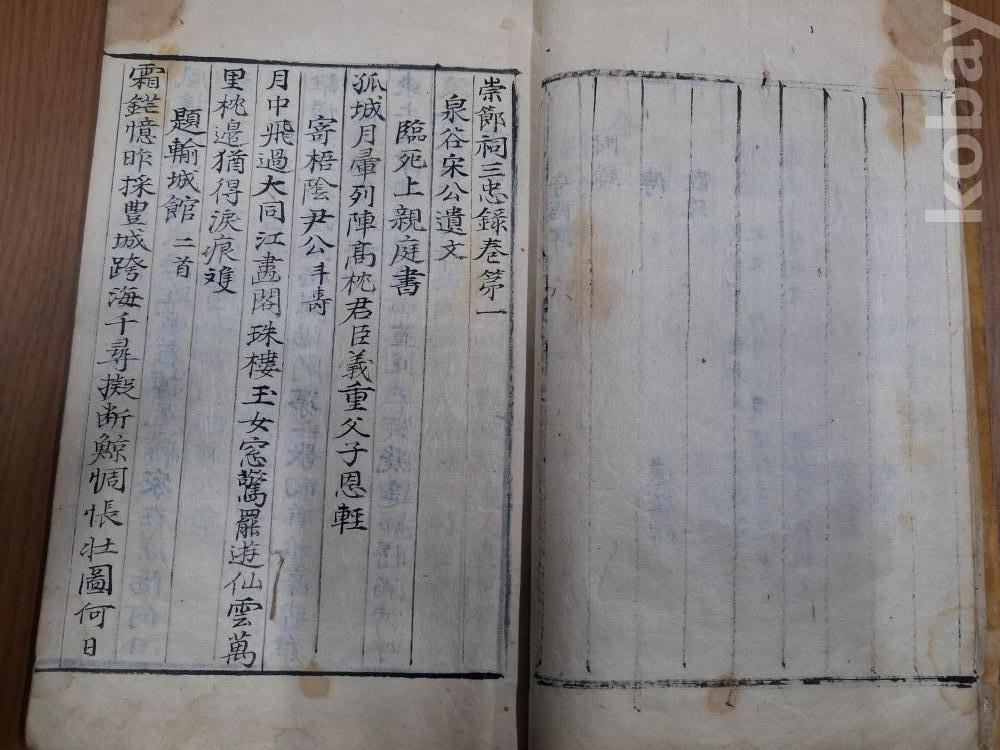 崇節祠三忠錄卷第一
泉谷宋公遺文
臨死上親庭書
孤城月暈列陣高枕君臣義重父子恩輕
寄梧陰尹公斗壽
月中飛過大同江畵閣珠樓玉女窓驚罷遊仙雲萬
里枕邊猶得淚痕雙
題輸城館 二首
霜鋩憶昨採豊城跨海千尋擬斷鯨惆悵壯圖何日
kobay